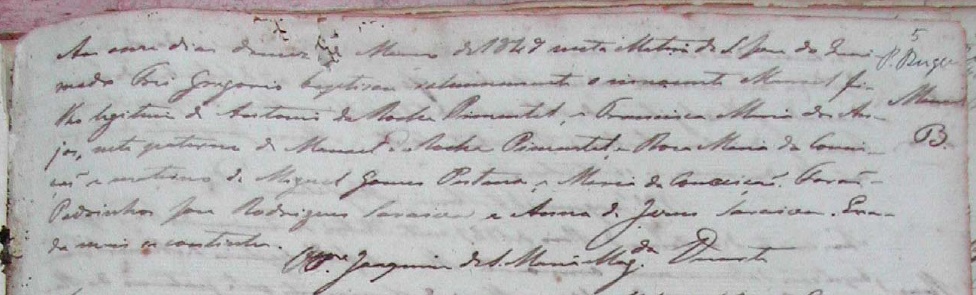 Ao onze dias do mez de Março de 1849 nesta Matriz de S. Jose do
Frei Gregorio baptisou solemnemente o innocente Manoel fi-
lho legitimo de Antonio da Rocha Pimentel, e Francisca Maria dos An-
jos, neto paterno de Manoel da Rocha Pimentel, e Rosa Maria da Concei-
ção e materno de Miguel Gomes Pestana e Maria da Conceição. Forão
Padrinhos Jose Rodrigues Saraiva e Anna de Jesus Saraiva. E na-
da mais se continha.
Joaquim de S. Maria Mag.da Duarte
5
Manoel
B.